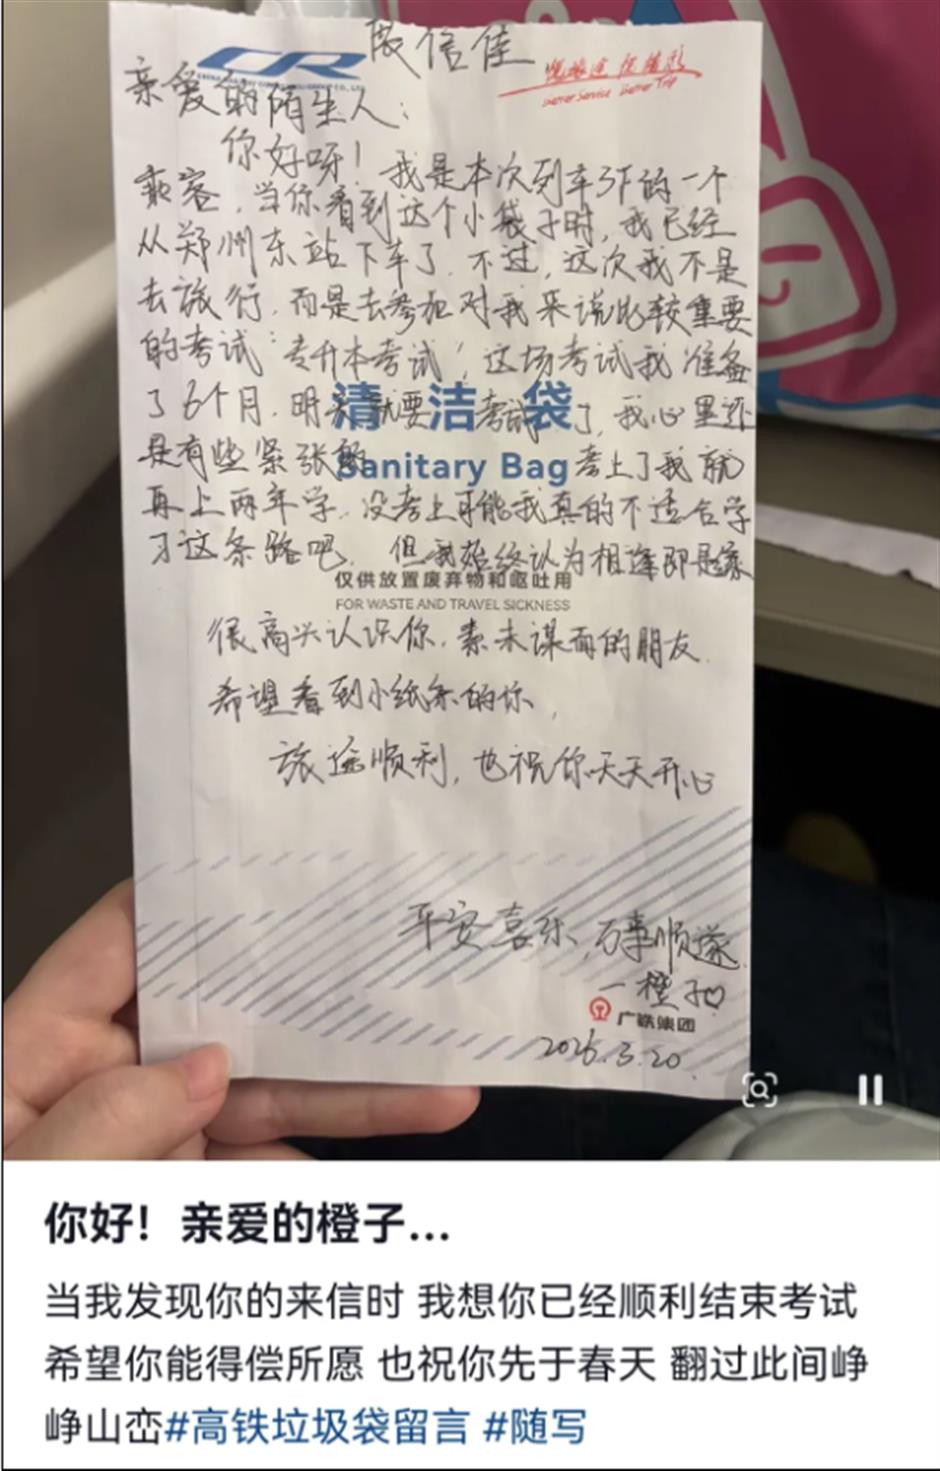 信佳
CR
悦旅途 促精彩
Better Service Better Trip
亲爱的陌生人：
你好呀！我是本次列车3F的一个
乘客，当你看到这个小袋子时，我已经
从郑州东站下车了，不过，这次我不是
去旅行，而是去参加对我来说比较重要
的考试“专升本考试”这场考试我准备
了6个月，明天就要考试了，我心里还
清洁袋
是有些紧张的 考上了我就
Sanitary Bag
再上两年学，没考上可能我真的不适合学
习这条路吧，但我始终认为相逢即是缘
仅供放置废弃物和呕吐用
FOR WASTE AND TRAVEL SICKNESS
很高兴认识你，素未谋面的朋友
希望看到小纸条的你，
旅途顺利，也祝你天天开心
平安喜乐，万事顺遂
一橙子♡
广铁集团
2026.3.20
你好！亲爱的橙子...
当我发现你的来信时 我想你已经顺利结束考试
希望你能得偿所愿 也祝你先于春天 翻过此间峥
峥山峦#高铁垃圾袋留言 #随写